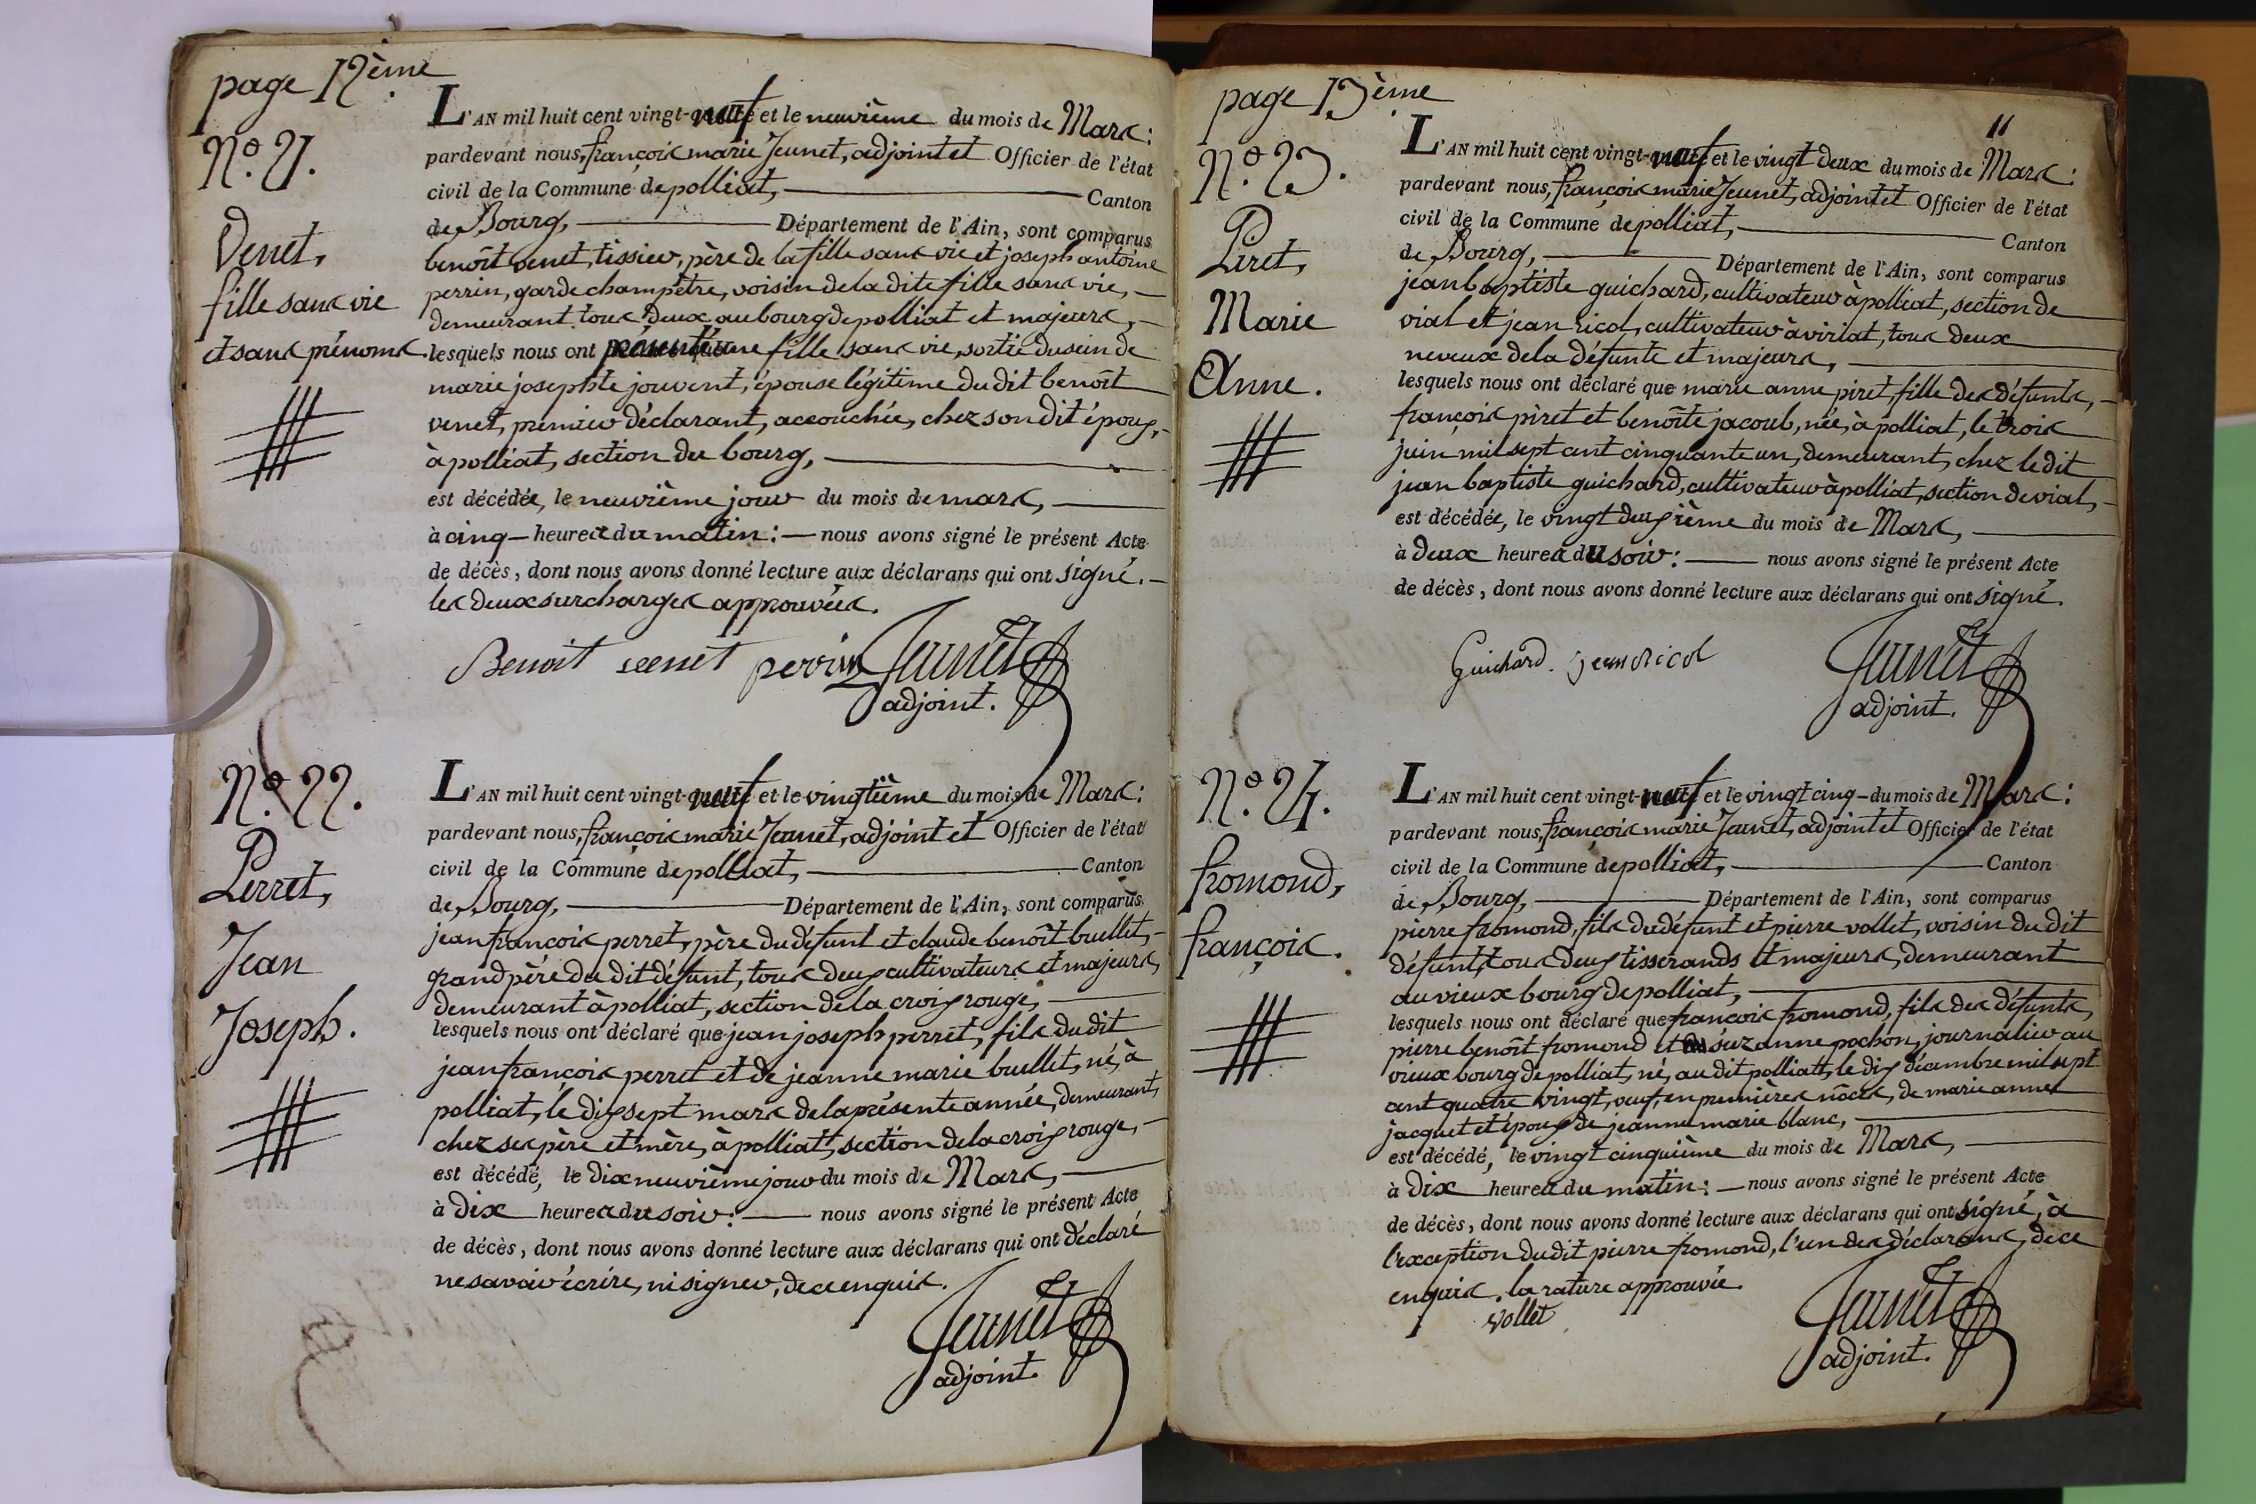 page 12ème.
N.° 21.
Venet,
fille sans vie
et sans prénoms.
L'AN mil huit cent vingt-neuf et le neuvième du mois de Mars :
pardevant nous, françois marie Jeunet, adjoint et Officier de l'état
civil de la Commune de polliat, Canton
de Bourg, Département de l'Ain, sont comparus
benoît venet, tissier, père de la fille sans vie et joseph antoine
perrin, garde champêtre, voisin de la dite fille sans vie,
demeurant tous deux au bourg de polliat et majeurs,
lesquels nous ont présenté une fille sans vie, sortie du sein de
marie josephte jouvent, épouse légitime du dit benoît
venet, premier déclarant, accouchée, chez son dit époux,
à polliat, section du bourg,
est décédée, le neuvième jour du mois de mars,
à cinq heures du matin : nous avons signé le présent Acte
de décès, dont nous avons donné lecture aux déclarans qui ont signé.
les deux surcharges approuvées.
Benoit venet perrin Jeunet
adjoint.
N.° 22.
Perret,
Jean
Joseph.
L'AN mil huit cent vingt-neuf et le vingtième du mois de Mars :
pardevant nous, françois marie Jeunet, adjoint et Officier de l'état
civil de la Commune de polliat, Canton
de Bourg, Département de l'Ain, sont comparus
jean françois perret, père du défunt et claude benoît buellet,
grand père du dit défunt, tous deux cultivateurs et majeurs,
demeurant à polliat, section de la croix rouge,
lesquels nous ont déclaré que jean joseph perret, fils du dit
jean françois perret et de jeanne marie buellet, né, à
polliat, le dix sept mars de la présente année, demeurant,
chez ses père et mère, à polliat, section de la croix rouge,
est décédé, le dix neuvième jour du mois de Mars,
à dix heures du soir : nous avons signé le présent Acte
de décès, dont nous avons donné lecture aux déclarans qui ont déclaré
ne savoir écrire, ni signer, de ce enquis.
Jeunet
adjoint.
page 13ème.
11
N.° 23.
Piret,
Marie
Anne.
L'AN mil huit cent vingt-neuf et le vingt deux du mois de Mars :
pardevant nous, françois marie Jeunet, adjoint et Officier de l'état
civil de la Commune de polliat, Canton
de Bourg, Département de l'Ain, sont comparus
jean baptiste guichard, cultivateur à polliat, section de
vial et jean ricol, cultivateur à viriat, tous deux
neveux de la défunte et majeurs,
lesquels nous ont déclaré que marie anne piret, fille des défunts,
françois piret et benoîte jacoub, née, à polliat, le trois
juin mil sept cent cinquante un, demeurant, chez le dit
jean baptiste guichard, cultivateur à polliat, section de vial,
est décédée, le vingt deuxième du mois de Mars,
à deux heures du soir : nous avons signé le présent Acte
de décès, dont nous avons donné lecture aux déclarans qui ont signé.
Guichard. jean ricol Jeunet
adjoint.
N.° 24.
fromond,
françois.
L'AN mil huit cent vingt-neuf et le vingt cinq du mois de Mars :
pardevant nous, françois marie Jeunet, adjoint et Officier de l'état
civil de la Commune de polliat, Canton
de Bourg, Département de l'Ain, sont comparus
pierre fromond, fils du défunt et pierre vollet, voisin du dit
défunt, tous deux tisserands et majeurs, demeurant
au vieux bourg de polliat,
lesquels nous ont déclaré que françois fromond, fils des défunts,
pierre benoît fromond et suzanne pochon, journalier au
vieux bourg de polliat, né, au dit polliat, le dix décembre mil sept
cent quatre vingt, veuf, en premières nôces, de marie anne
jacquet et époux de jeanne marie blanc,
est décédé, le vingt cinquième du mois de Mars,
à dix heures du matin : nous avons signé le présent Acte
de décès, dont nous avons donné lecture aux déclarans qui ont signé, à
l'exception du dit pierre fromond, l'un des déclarans, de ce
enquis. la rature approuvée.
vollet Jeunet
adjoint.